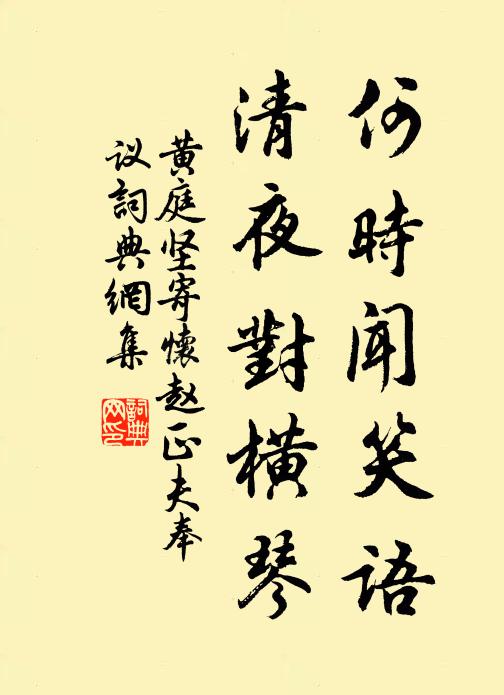 何時聞笑語
清夜對横琴
黄庭坚寄懷赵正夫奉
议詞典網集
詞典
网印